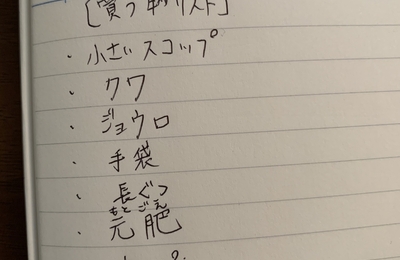 [買う物リスト]
・小さいスコップ
・クワ
・ジョウロ
・手袋
・長ぐつ
もとごえ
・元肥